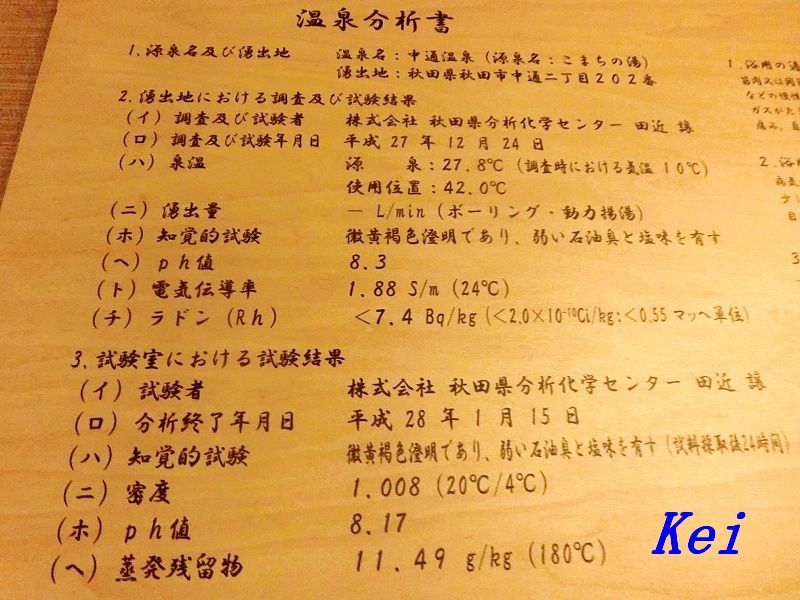 温泉分析書
1. 源泉名及び湧出地 温泉名：中通温泉（源泉名：こまちの湯）
湧出地：秋田県秋田市中通二丁目２０２番
2. 湧出地における調査及び試験結果
（イ）調査及び試験者 株式会社 秋田県分析化学センター 田近 譲
（ロ）調査及び試験年月日 平成 27 年 12 月 24 日
（ハ）泉温 源　泉：27.8℃（調査時における気温 10℃）
使用位置：42.0℃
（ニ）湧出量 － L/min（ボーリング・動力揚湯）
（ホ）知覚的試験 微黄褐色澄明であり、弱い石油臭と塩味を有す
（ヘ）ｐｈ値 8.3
（ト）電気伝導率 1.88 S/m（24℃）
（チ）ラドン（Rh） ＜7.4 Bq/kg（＜2.0×10⁻¹⁰Ci/kg:＜0.55 マッヘ単位）
3. 試験室における試験結果
（イ）試験者 株式会社 秋田県分析化学センター 田近 譲
（ロ）分析終了年月日 平成 28 年 1 月 15 日
（ハ）知覚的試験 微黄褐色澄明であり、弱い石油臭と塩味を有す（試料採取後24時間）
（ニ）密度 1.008（20℃/4℃）
（ホ）ｐｈ値 8.17
（ヘ）蒸発残留物 11.49 g/kg（180℃）
1. 浴用の
などの慢性
ガスがた
痛み、
2. 浴用
病気
少し
目
3
Kei